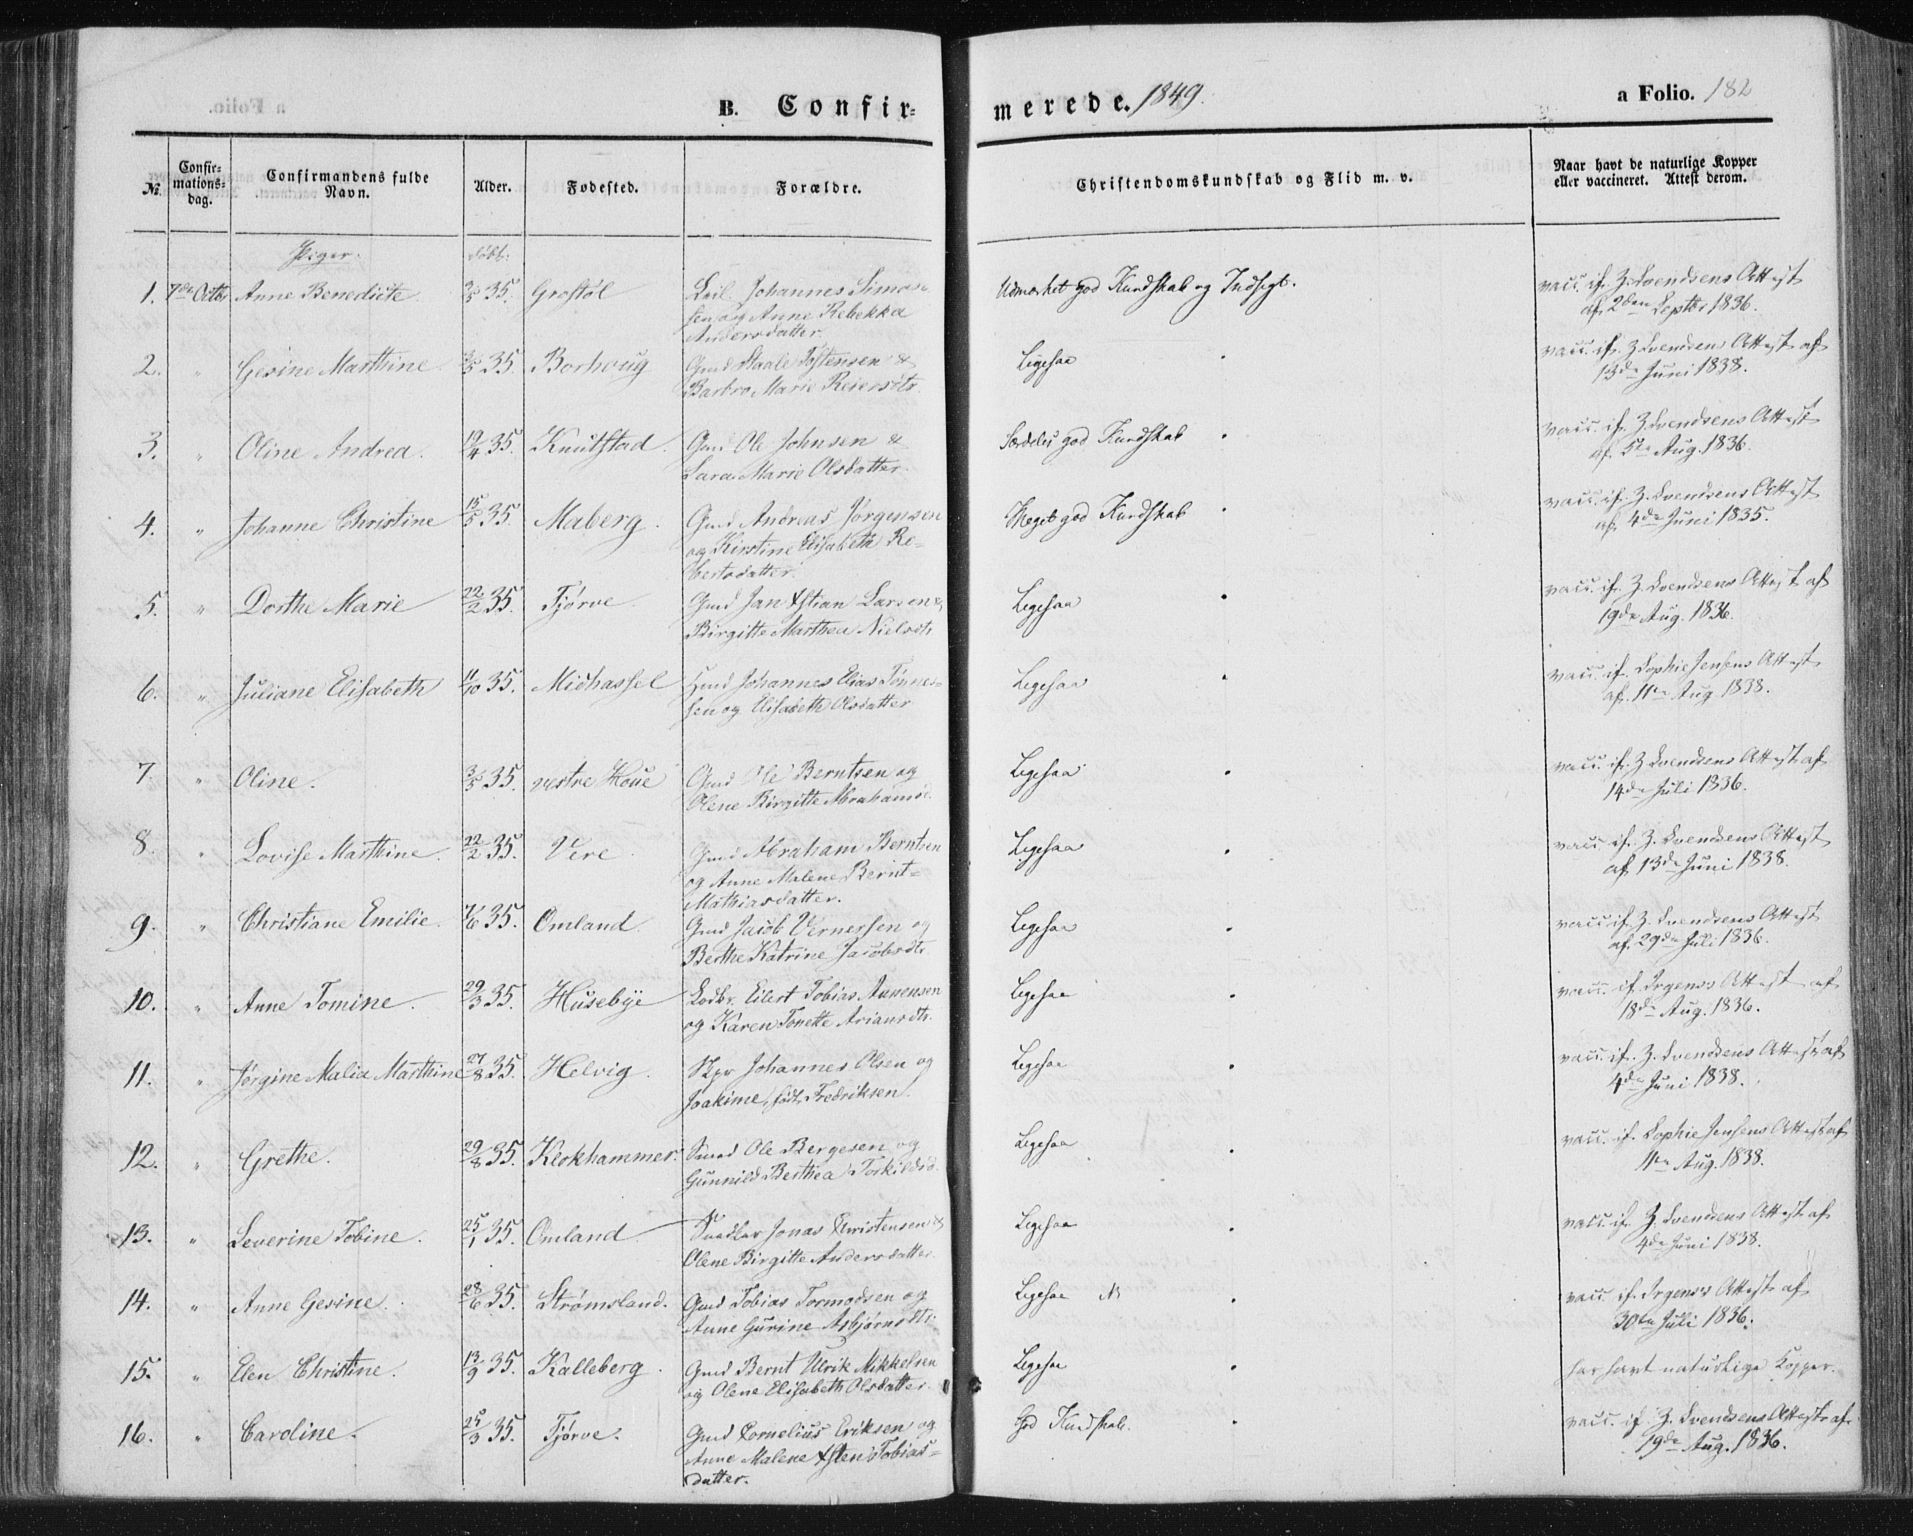 B. Confir-
merede. 1849.
a Folio. 182
№.
Confir-
mations-
dag.
Confirmandens fulde
Navn.
Alder.
Fødested.
Forældre.
Christendomskundskab og Flid m. v.
Naar havt de naturlige Kopper
eller vaccineret. Attest derom.
Piger.
døbt.
1. 7de Octbr Anne Benedicte 35. Grostøl Johannes Simon-
sen og Anne Rebekka
Andersdatter
Udmærket god Kundskab og Indsigt.
vacc. if. Z. Svendsens Attest
af 2den Septbr 1836.
2. " Gesine Marthine 35. Borhoug Gmd Staale Tostensen &
Barbro Marie Reiersdtr.
Ligesaa
vacc. if. Z. Svendsens Attest af
13de Juni 1838.
3. " Oline Andrea. 19/4 35. Knutstad. Gmd Ole Johnsen &
Sara Marie Olsdatter.
Særdeles god Kundskab
vacc. if. Z. Svendsens Attest
af 5te Aug. 1836.
4. " Johanne Christine 15/5 35. Maberg. Gmd Andreas Jørgensen
og Kirstine Elisabeth Re-
bertsdatter.
Meget god Kundskab
vacc. if. Z. Svendsens Attest
af 4de Juni 1835.
5. " Dorthe Marie 22/2 35. Tjørve Gmd Jan Xstian Larsen &
Birgitte Marthea Nielsdtr
Ligesaa
vacc. if. Z. Svendsens Attest af
19de Aug. 1836.
6. " Juliane Elisabeth 11/10 35. Midhassel Johannes Elias Tønnes-
sen og Elisabeth Olsdatter
Ligesaa
vacc. if. Sophie Jensens Attest
af 11te Aug. 1838.
7 " Oline. 3/5 35. vestre Houe Gmd Ole Berntsen og
Olene Birgitte Abrahamsd.
Ligesaa
vacc. if. Z. Svendsens Attest af
14de Juli 1836.
8. " Lovise Marthine. 22/2 35. Vere Gmd Abraham Berntsen
og Anne Malene Bernt-
Mathiasdatter.
Ligesaa
vacc. if. Z. Svendsens Attest
af 13de Juni 1838.
9. " Christiane Emilie. 7/6 35. Omland. Gmd Jacob Vernersen og
Berthe Katrine Jacobsdtr.
Ligesaa
vacc. if. Z. Svendsens Attest
af 29de Juli 1836.
10. " Anne Tomine. 29/3 35. Husebye Eilert Tobias Aanensen
og Karen Tonette Ariansdtr.
Ligesaa
vacc. if. Irgens's Attest af
18de Aug. 1836.
11. " Jørgine Malia Marthine 27/8 35. Helvig. Skpr Johannes Olsen og
Joakime, født Fredriksen.
Ligesaa
vacc. if. Z. Svendsens Attest af
4de Juni 1838.
12. " Grethe. 29/8 35. Klokhammer. Ole Bergesen og
Gunnild Berthea Torkildsd.
Ligesaa
vacc. if. Sophie Jensens Attest af
11te Aug. 1838.
13. " Severine Tobine. 25/1 35. Omland Snedker Jonas Christensen &
Olene Birgitte Andersdatter.
Ligesaa
vacc. if. Z. Svendsens Attest af
4de Juni 1838.
14. " Anne Gesine. 28/6 35. Strømsland. Gmd Tobias Tormodsen og
Anne Gurine Asbjørnsdtr.
Ligesaa
vacc. if. Irgens's Attest af
30te Juli 1836.
15. " Elen Christine. 13/9 35. Kalleberg. Gmd Bernt Ulrik Mikkelsen
og Olene Elisabeth Olsdatter.
Ligesaa
har havt naturlige Kopper.
16. " Caroline. 25/3 35. Tjørve. Gmd Cornelius Eriksen og
Anne Malene Xsten Tobias-
datter.
God Kundskab.
vacc. if. Z. Svendsens Attest af
19de Aug. 1836.